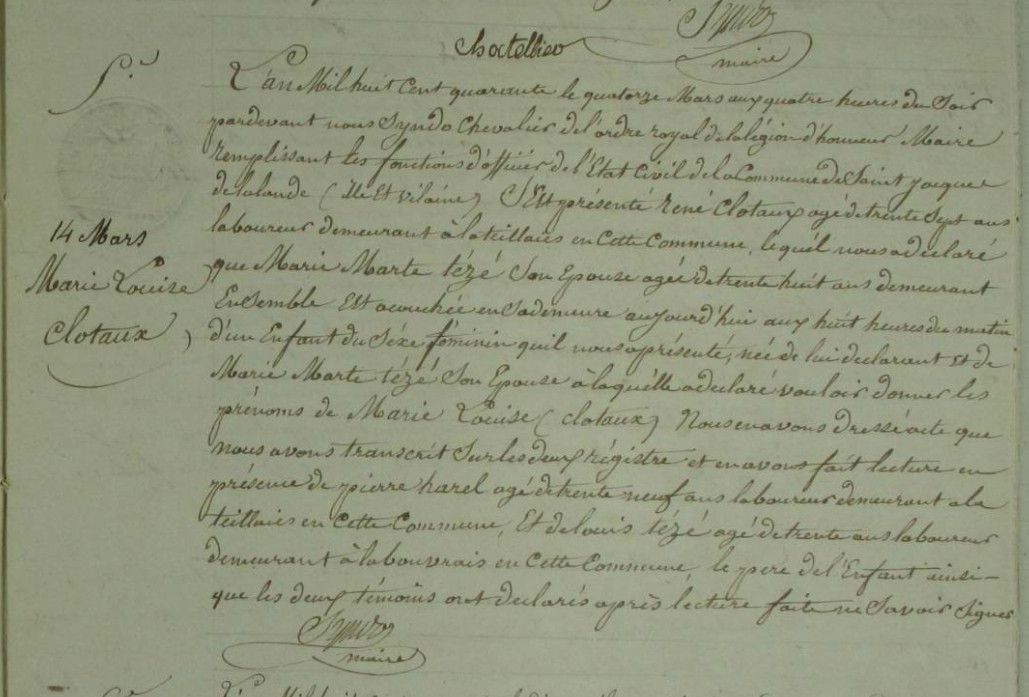 Syndo
Choctellier
maire
L'an Mil huit Cent quarante le quatorze Mars aux quatre heures du Soir
pardevant nous Syndo Chevalier de l'ordre royal de la légion d'honneur Maire
remplissant les fonctions d'officier de l'Etat Civil de la Commune de Saint jacques
delalande (ille Et vilaine) S'Est présenté rené Clotaux agé de trente Sept ans
laboureur demeurant à la teillais en Cette Commune, lequel nous a déclaré
que Marie Marte tézé Son Epouse agée de trente huit ans demeurant
Ensemble Est acouchée en sa demeure aujourd'hui aux huit heures du matin
d'un Enfant du Séxe féminin qu'il nous a présenté, née de lui déclarant Et de
Marie Marte tézé Son Epouse à laquélle a déclaré vouloir donner les
prénoms de Marie Louise (clotaux) Nous en avons dressé acte que
nous avons transcrit Sur les deux régistre et en avons fait lecture en
présence de pierre harel agé de trente neuf ans laboureur demeurant a la
teillais en Cette Commune, Et de louis tézé agé de trente ans laboureur
demeurant à la bouvrais en Cette Commune, le pere de l'Enfant ainsi-
que les deux témoins ont declarés après lecture faite ne Savoir Signer
Syndo
maire
14 Mars
Marie Louise
clotaux